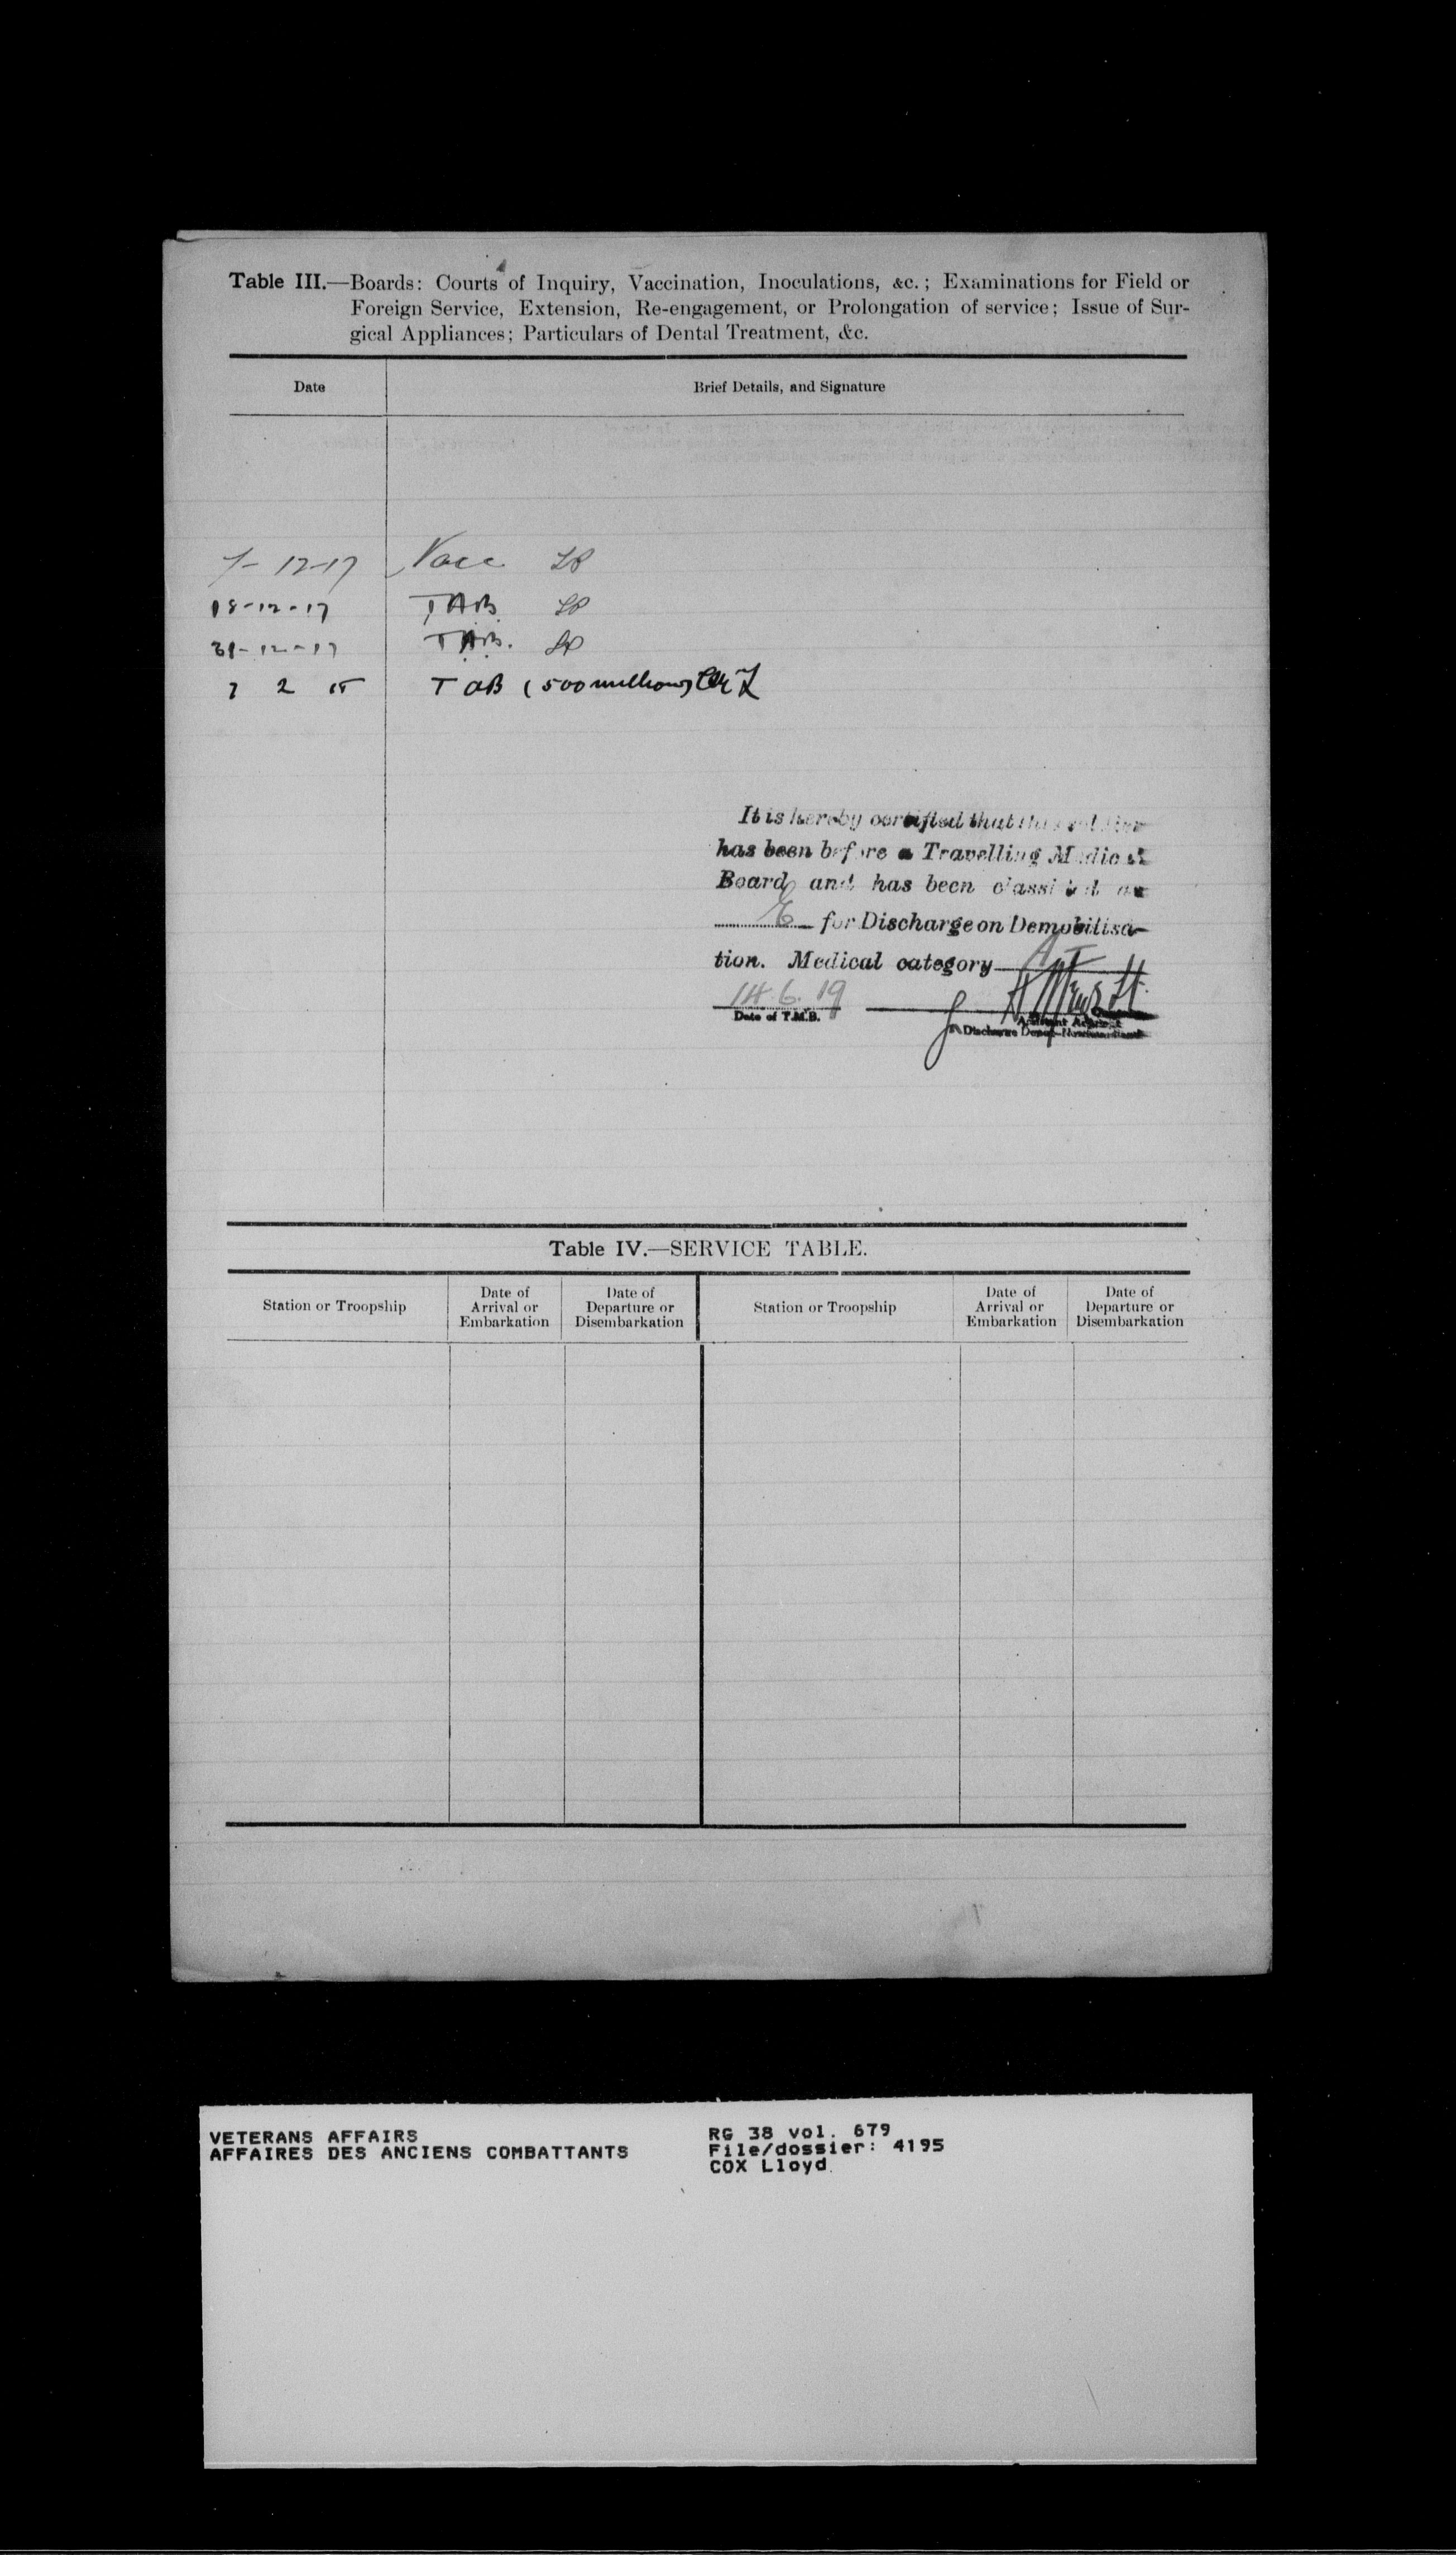 Table III.—Boards: Courts of Inquiry, Vaccination, Inoculations, &c.; Examinations for Field or
Foreign Service, Extension, Re-engagement, or Prolongation of service; Issue of Sur-
gical Appliances; Particulars of Dental Treatment, &c.
Date Brief Details, and Signature
7-12-17 Vacc
18-12-17 TAB
31-12-17 TAB.
7 2 TAB (500 million)
It is hereby certified that this soldier
has been before a Travelling Medical
Board and has been classified as
E for Discharge on Demobilisa-
tion. Medical category
14.6.19
Date of T.M.B.
Discharge Depot
Table IV.—SERVICE TABLE.
Station or Troopship Date of Arrival or Embarkation Date of Departure or Disembarkation Station or Troopship Date of Arrival or Embarkation Date of Departure or Disembarkation
VETERANS AFFAIRS RG 38 vol. 679
AFFAIRES DES ANCIENS COMBATTANTS File/dossier: 4195
COX Lloyd